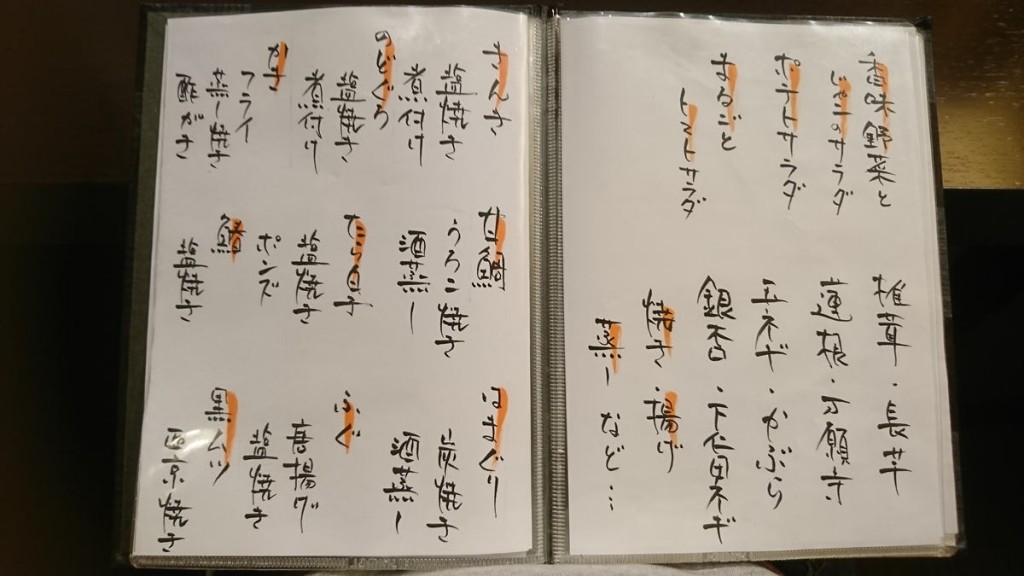 香味野菜と
じゃこのサラダ
ポテトサラダ
まるごと
トマトサラダ
椎茸・長芋
蓮根・万願寺
玉ネギ・かぶら
銀杏・下仁田ネギ
焼き・揚げ
蒸し など…
きんき
塩焼き
煮付け
のどぐろ
塩焼き
煮付け
かき
フライ
蒸し焼き
酢がき
甘鯛
うろこ焼き
酒蒸し
たら白子
塩焼き
ポンズ
塩焼き
はまぐり
炭焼き
酒蒸し
ふぐ
唐揚げ
塩焼き
黒ムツ
西京焼き